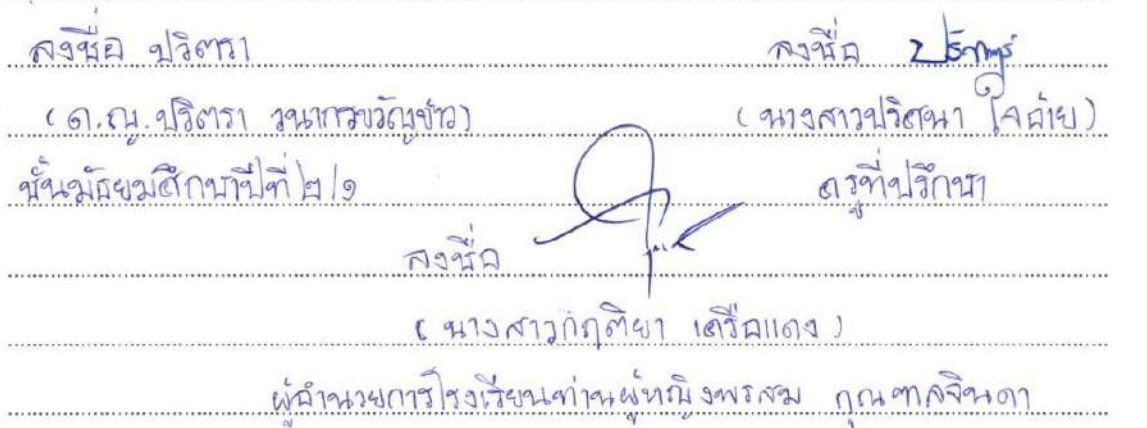 ลงชื่อ ปวิตรา ลงชื่อ
(ด.ญ.ปวิตรา วนากรขวัญข้าว) (นางสาวปริศนา ใจถ้าย)
ชั้นมัธยมศึกษาปีที่ ๒/๑ ครูที่ปรึกษา
ลงชื่อ
(นางสาวกฤติยา เครือแดง)
ผู้อำนวยการโรงเรียนท่านผู้หญิงพรสม กุณฑลจินดา